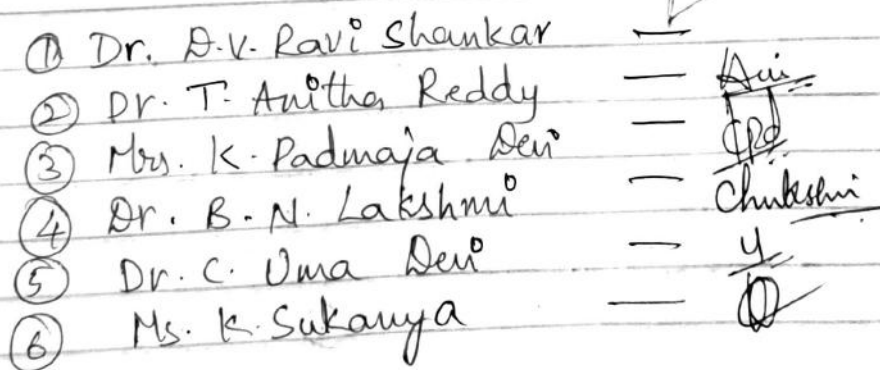 ① Dr. D.V. Ravi Shankar —
② Dr. T. Anitha Reddy —
③ Mrs. K. Padmaja Devi —
④ Dr. B. N. Lakshmi —
⑤ Dr. C. Uma Devi —
⑥ Ms. K. Sukanya —